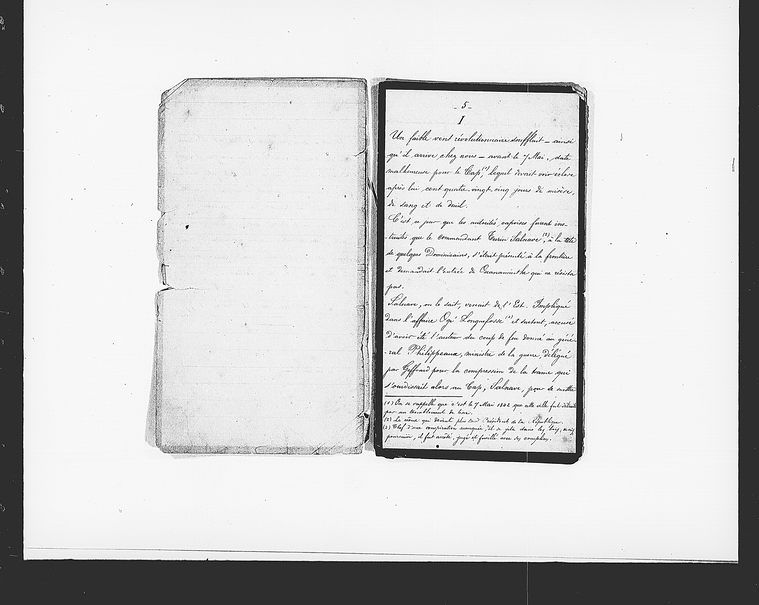 - 5 -
I
Un faible vent révolutionnaire soufflait – ainsi
qu'il arrive chez nous – avant le 7 Mai, date
malheureuse pour le Cap, (1) lequel devait voir éclore
après lui cent quatre-vingt-cinq jours de misère,
de sang et de deuil.
C'est ce jour que les autorités capoises furent ins-
truites que le commandant Salnave, (2) à la tête
de quelques Dominicains, s'était présenté à la frontière
et demandait l'entrée de Ouanaminthe qui ne résista
pas.
Salnave, on le sait, venait de l'Est. Impliqué
dans l'affaire Ogé Longuefosse (3) et surtout, accusé
d'avoir été l'auteur du coup de feu donné au géné-
ral Philippeaux, ministre de la guerre, délégué
par Geffrard pour la compression de la trame qui
s'ourdissait alors au Cap, Salnave, pour se mettre
(1) On se rappelle que c'est le 7 Mai 1842 que cette ville fut détruite
par un tremblement de terre.
(2) Le même qui devint plus tard Président de la République.
(3) Chef d'une conspiration manquée, il se jeta dans les bois, mais
poursuivi, il fut arrêté, jugé et fusillé avec ses complices.